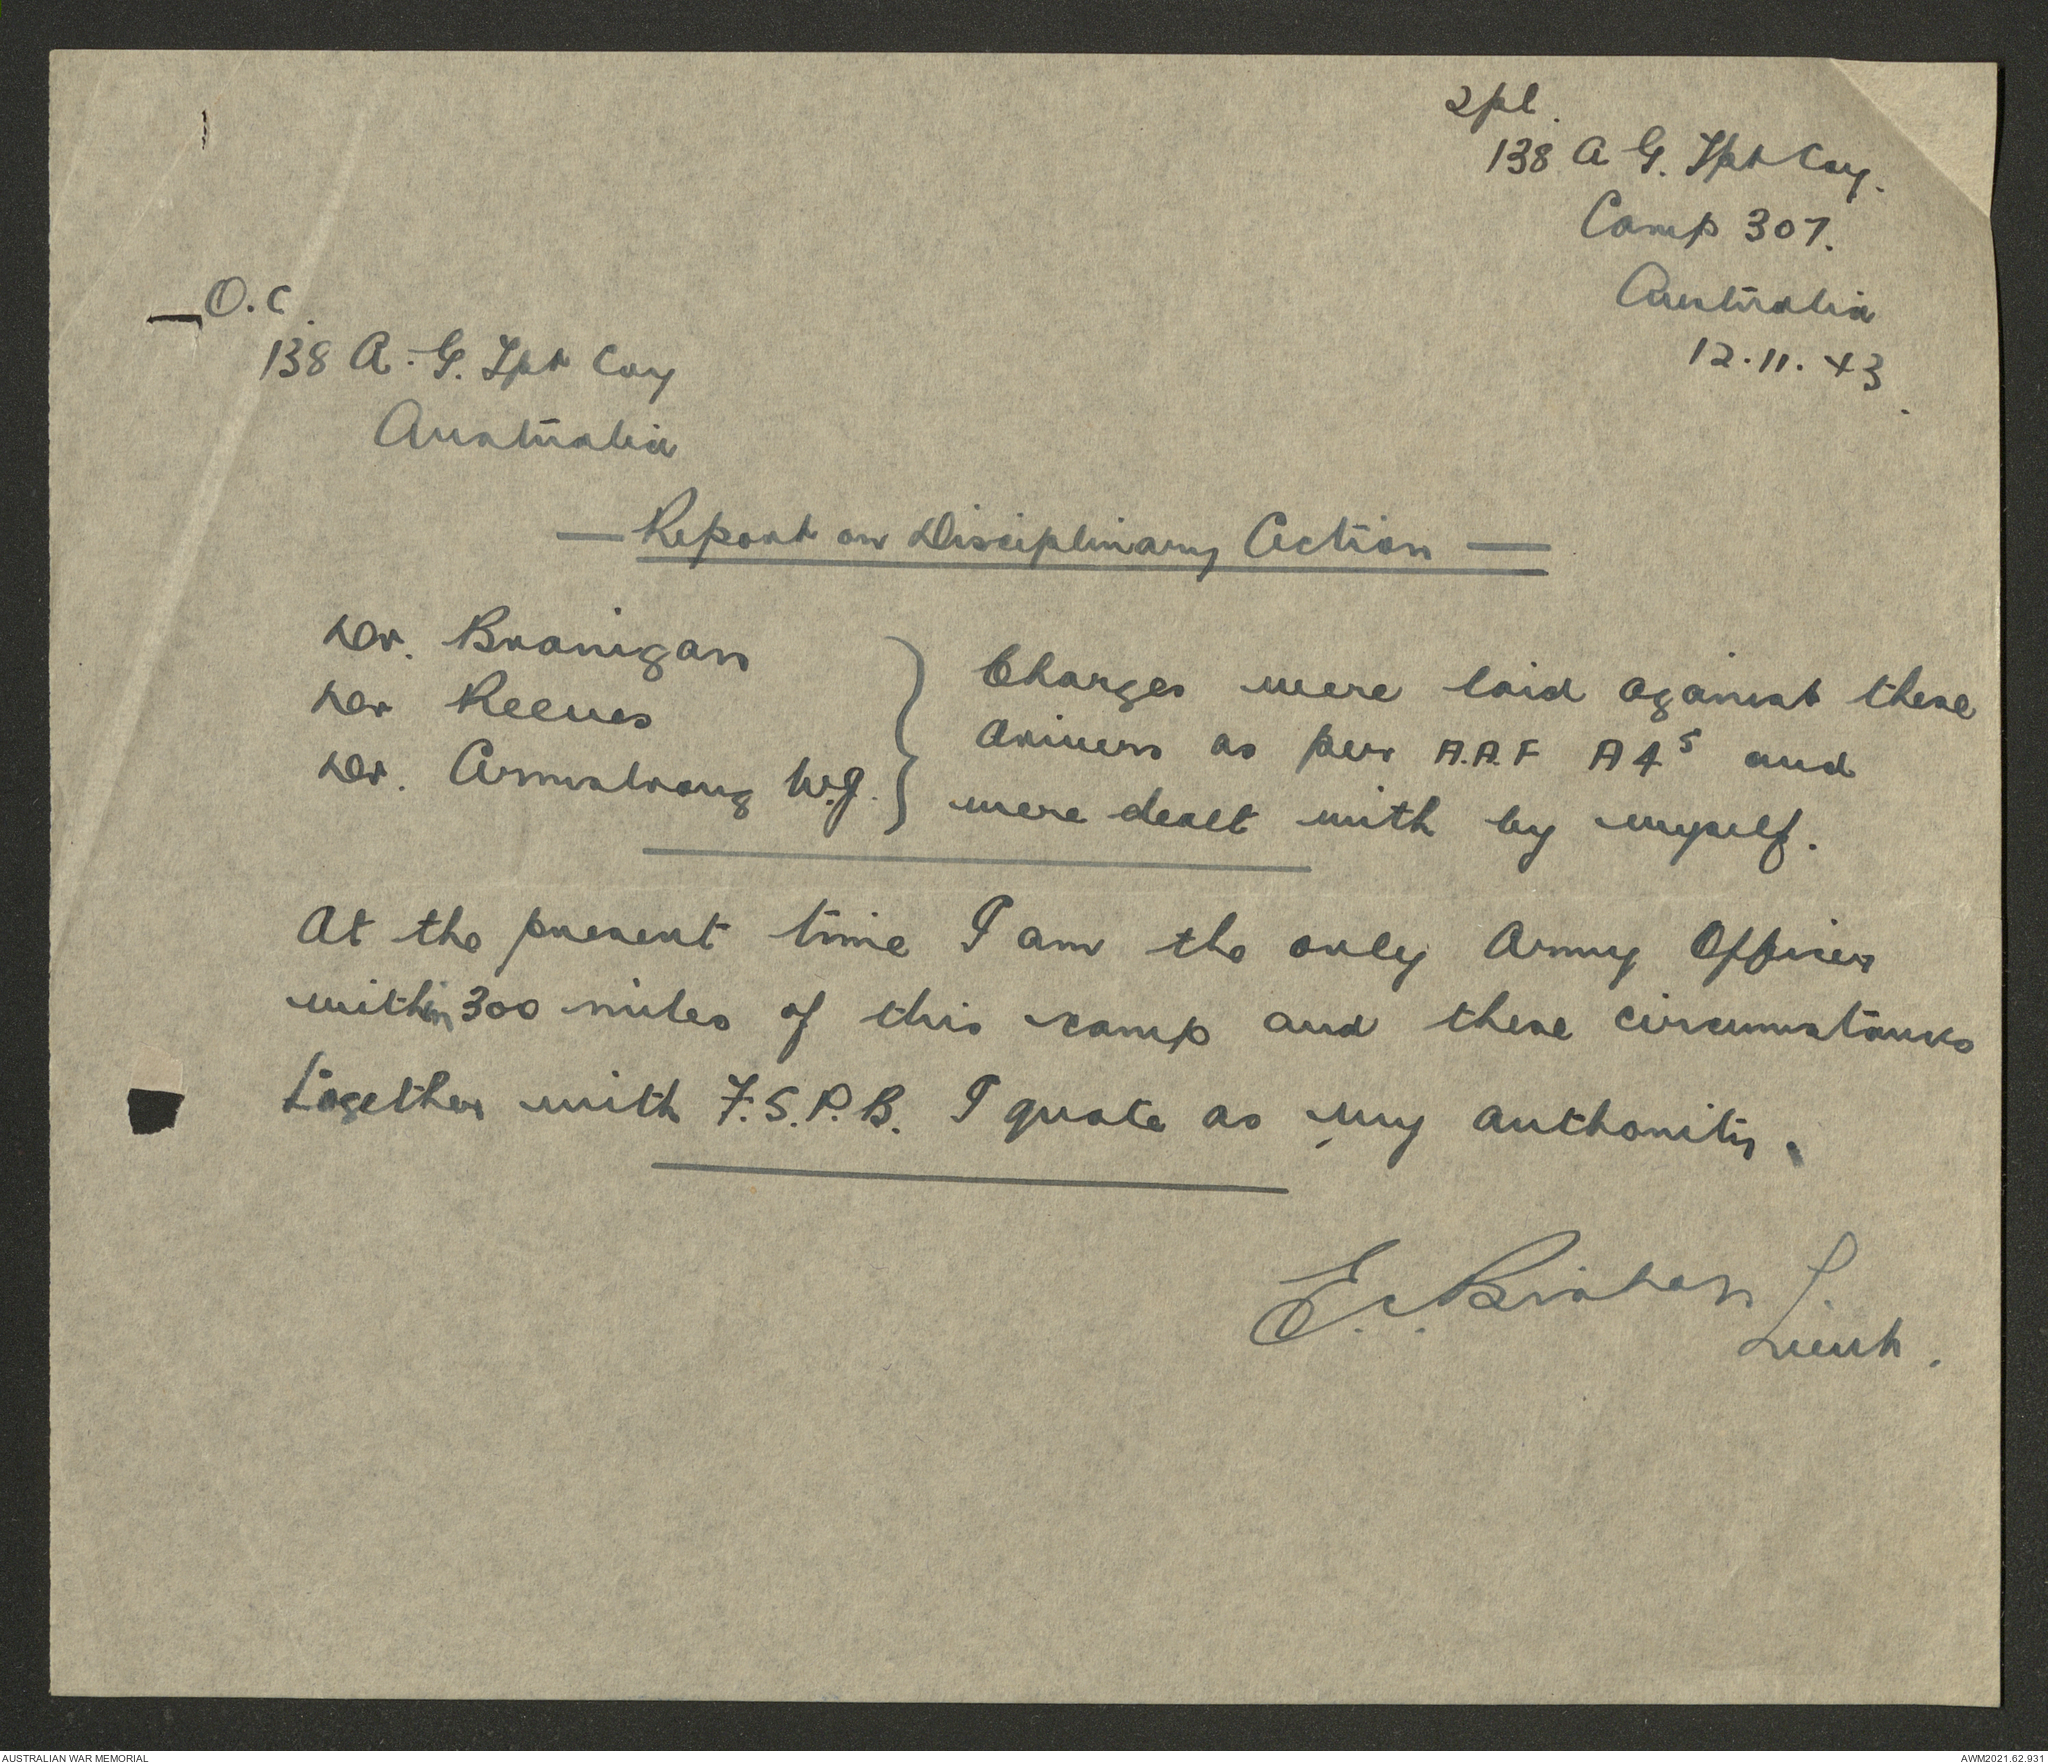 2pl.
138 A G. Tpt Coy.
Camp 307.
Australia
12.11.43.
O.C.
138 A.G. Tpt Coy
Australia
— Report on Disciplinary Action —
Dvr. Branigan
Dvr Reeves
Dvr. Armstrong W.J.
Charges were laid against these
drivers as per A.A.F A4s and
were dealt with by myself.
At the present time I am the only Army Officer
within 300 miles of this camp and these circumstances
together with F.S.P.B. I quote as my authority.
E.
Lieut.
AUSTRALIAN WAR MEMORIAL
AWM2021.62.931